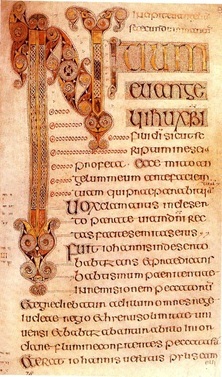 INITIUM
euange
lii ihu xpi
fili di sicut sc
riptum in esa
profeta Ecce mitto an
gelum meum ante faciem
tuam qui praeparabit
Uox clamantis in deserto
parate uiam dni Rec
tas facite semitas eius
Fuit iohannis in deserto
babtizans et praedicans
babtismum paenitentiae
in remisionem peccatorum
Et egrediebatur ad illum omnes reg
iudeae regio et hierusolimitae uni
uersi et babtizabantur ab illo in
flumine confitentes peccata
Et erat iohannis uestitus pilis cam